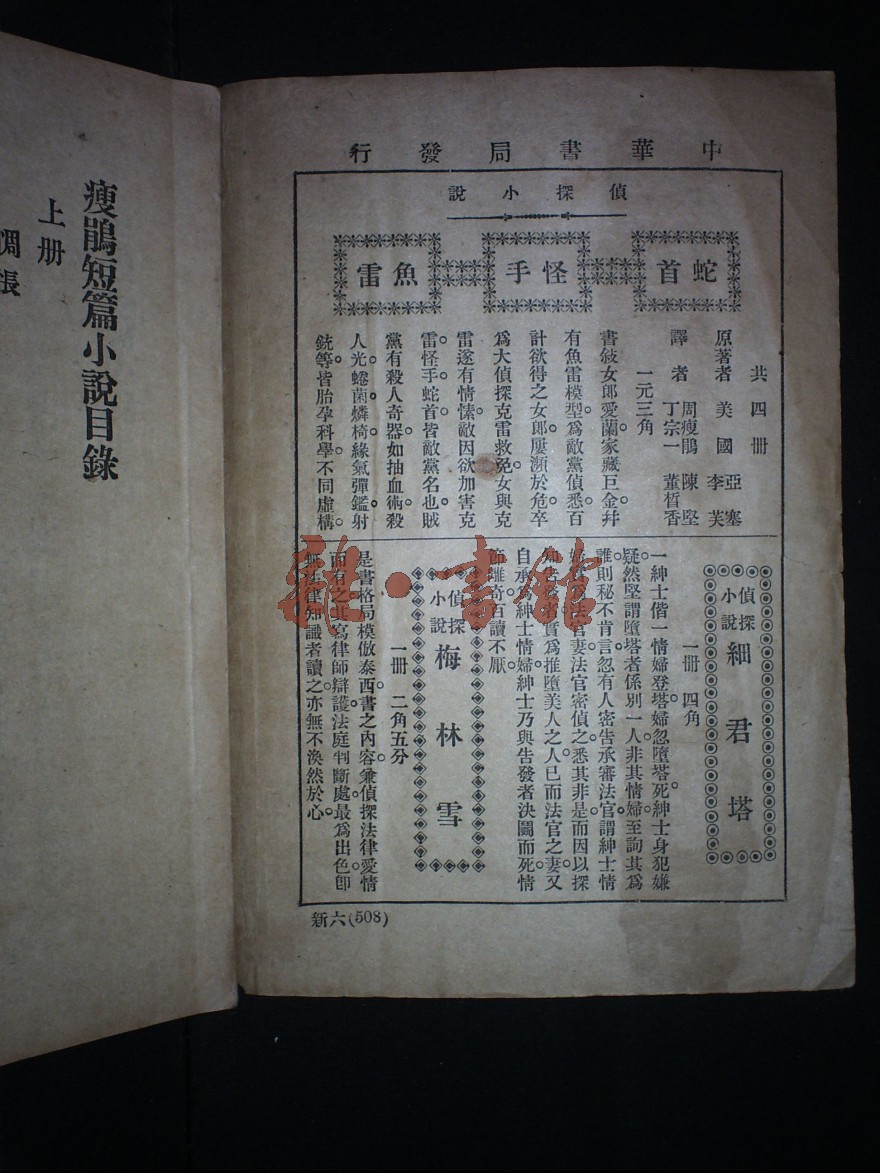 中華書局發行
偵探小說
蛇首
怪手
魚雷
共四冊
原著者 美國 亞塞李芙
譯者 周瘦鵑 陳堅 丁宗一 董皙香
一元三角
書敍女郎愛蘭家藏巨金幷
有魚雷模型。爲敵黨偵悉百
計欲得之女郎屢瀕於危卒
爲大偵探克雷救免。女與克
雷遂有情愫。敵因欲加害克
雷。怪手蛇首皆敵黨名也賊
黨有殺人奇器。如抽血術。殺
人光。蜷菌。燐椅緣氣彈鑑射
銃等。皆胎孕科學不同虛構。
偵探小說 細君塔
一冊 四角
一紳士偕一情婦登塔婦忽墮塔死。紳士身犯嫌
疑。然堅謂墮塔者係別一人非其情婦。至詢其爲
誰則秘不肯言。忽有人密告承審法官謂紳士情
法官妻法官密偵之。悉其非是而因以探
爲推墮美人之人。已而法官之妻又
自承爲紳士情婦紳士乃與告發者決鬪而死情
節離奇百讀不厭。
偵探小說 梅林雪
一冊 二角五分
是書格局模倣泰西。書之內容。兼偵探法律愛情
而有之。其寫律師辯護。法庭判斷處。最爲出色。卽
無法律知識者讀之。亦無不渙然於心。
新六(508)
瘦鵑短篇小說目錄
上册